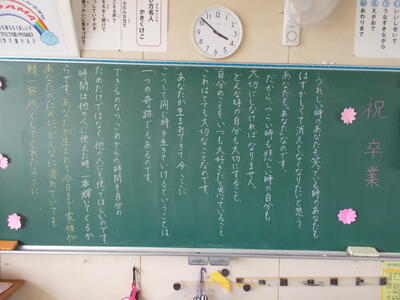 祝 卒業
うれしい時のあなたも、笑っている時のあなたも
はずかしくて消えてなくなりたいと思う
あなたも、あなたなのです。
だから、つらい時も悲しい時の自分も
大切にしなければなりません。
どんな時の自分も大切にすること、
自分のことをいつも大好きだと思っていること
これはとても大切なことなのです。
あなたが生まれてきて、今ここに
こうして同じ時を生きていけるということは
一つの奇跡でもあるのです。
できるのなら、これからの時間を自分の
ためだけではなく他の人にも使ってほしいのです。
時間は他の人に使えた時、一番輝いてくるか
らです。あなたが生まれて今日まで家族が
あなたのために、どんなに疲れていても
精一杯尽くしてくれたように